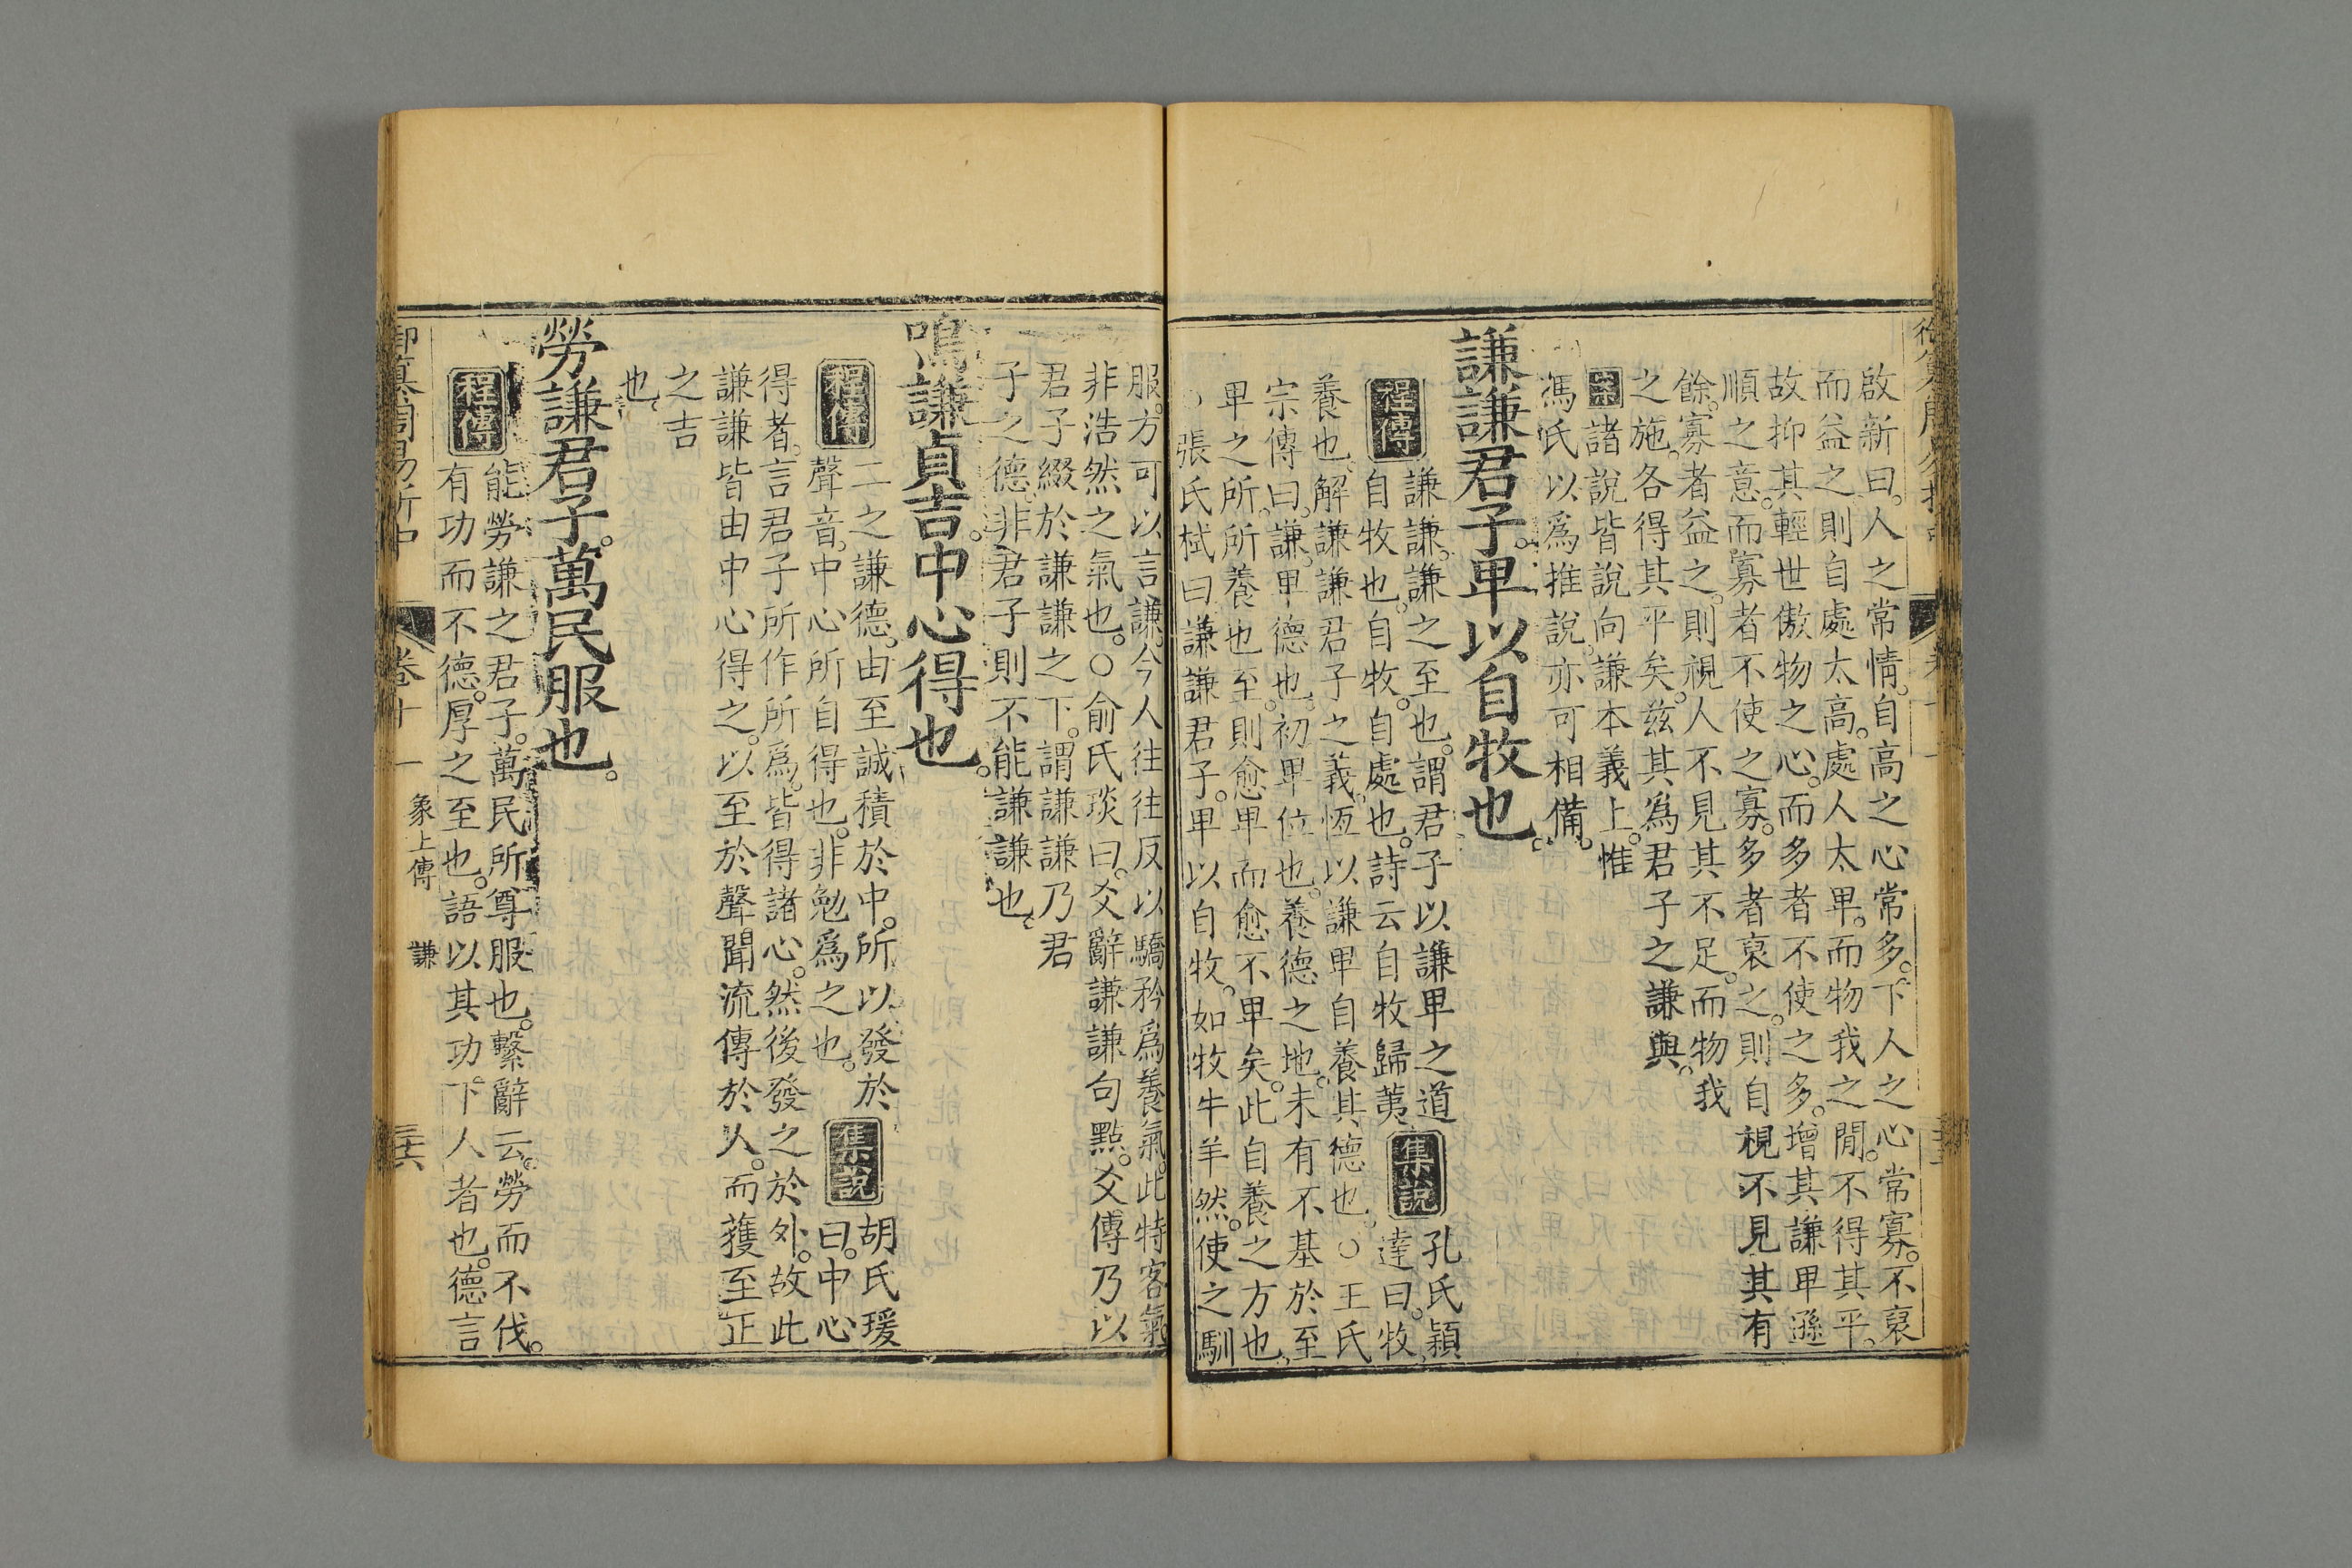 啟新曰。人之常情。自高之心常多。下人之心常寡。不裒
而益之。則自處太高。處人太卑。而物我之閒。不得其平。
故抑其輕世傲物之心。而多者不使之多。增其謙卑遜
順之意。而寡者不使之寡。多者裒之。則自視不見其有
餘。寡者益之。則視人不見其不足。而物我
之施。各得其平矣。茲其爲君子之謙與。
案諸說皆說向謙本義上。惟
馮氏以爲推說。亦可相備。
謙謙君子。卑以自牧也。
程傳
謙謙。謙之至也。謂君子以謙卑之道
自牧也。自牧。自處也。詩云自牧歸荑
集說
孔氏穎
達曰。牧。
養也。解謙謙君子之義。恆以謙卑自養其德也。○王氏
宗傳曰。謙。卑德也。初。卑位也。養德之地。未有不基於至
卑之所。所養也至。則愈卑而愈不卑矣。此自養之方也。
○張氏栻曰。謙謙君子。卑以自牧。如牧牛羊然。使之馴
服。方可以言謙。今人往往反以驕矜爲養氣。此特客氣
非浩然之氣也。○俞氏琰曰。爻辭謙謙句點。爻傳乃以
君子綴於謙謙之下。謂謙謙乃君
子之德。非君子則不能謙謙也。
鳴謙貞吉。中心得也。
程傳
二之謙德。由至誠積於中。所以發於
聲音。中心所自得也。非勉爲之也。
集說
胡氏瑗
曰。中心
得者。言君子所作所爲。皆得諸心。然後發之於外。故此
謙謙皆由中心得之。以至於聲聞流傳於人。而獲至正
之吉
也。
勞謙君子。萬民服也。
程傳
能勞謙之君子。萬民所尊服也。繫辭云。勞而不伐。
有功而不德。厚之至也。語以其功。下人者也。德言
御纂周易折中
卷十一
象上傳
謙
三六